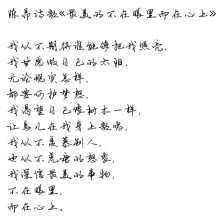 陈昂诗歌《最美的不在眼里而在心上》
我从不期待谁能够把我照亮,
我甘愿做自己的太阳,
无论现实怎样,
都要呵护梦想,
我渴望自己像树木一样,
让鸟儿在我身上歌唱,
我从不羡慕别人,
也从不荒唐的想象,
我深信最美的事物,
不在眼里,
而在心上。